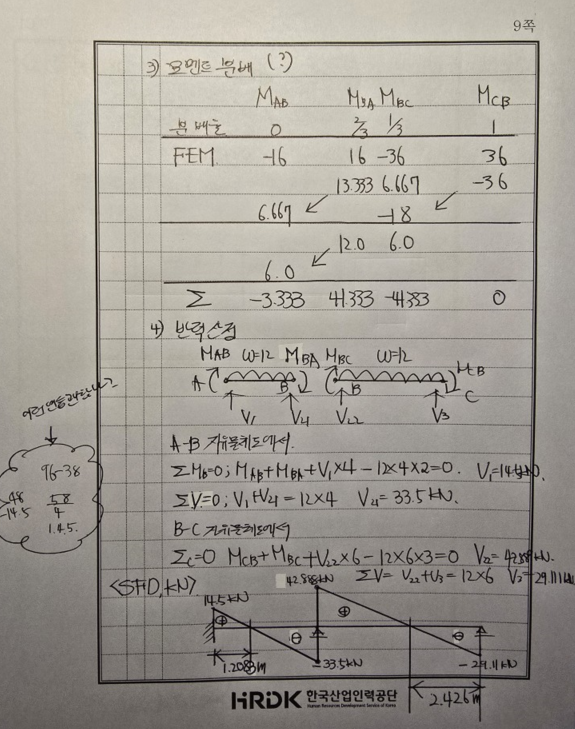 9쪽
3) 모멘트 분배 (?)
M_AB M_BA M_BC M_CB
분배율 0 2/3 1/3 1
FEM -16 16 -36 36
13.333 6.667 -36
6.667 -18
12.0 6.0
6.0
Σ -3.333 41.333 -41.333 0
4) 반력산정
M_AB ω=12 M_BA M_BC ω=12 M_CB
A B B C
V_1 V_21 V_22 V_3
A-B 자유물체도에서.
ΣM_B=0; M_AB+M_BA+V_1×4-12×4×2=0. V_1=14.5kN.
ΣV=0; V_1+V_21=12×4 V_21=33.5kN.
B-C 자유물체도에서
Σ_C=0 M_CB+M_BC+V_22×6-12×6×3=0 V_22=42.88kN.
ΣV= V_22+V_3=12×6 V_3=29.111kN
96-38
48
-14.5
58
4
14.5.
<SFD, kN>
14.5kN
42.888kN
⊕ ⊖ ⊕ ⊖
1.2083m
-33.5kN
-29.11kN
2.426m
HRDK 한국산업인력공단
Human Resources Development Service of Korea